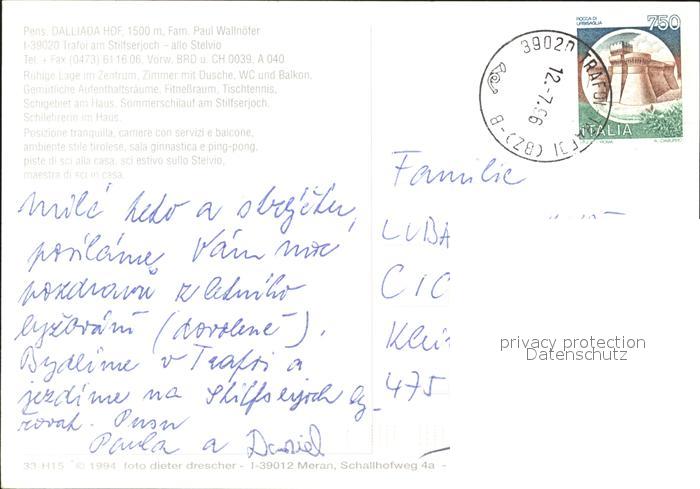 Pens. DALLIADA HOF, 1500 m, Fam. Paul Wallnöfer
I-39020 Trafoi am Stilfserjoch - allo Stelvio
Tel. + Fax (0473) 61 16 06. Vorw. BRD u. CH 0039, A 040
Ruhige Lage im Zentrum, Zimmer mit Dusche, WC und Balkon.
Gemütliche Aufenthaltsräume, Fitneßraum, Tischtennis,
Schigebiet am Haus. Sommerschilauf am Stilfserjoch.
Schilehrerin im Haus.
Posizione tranquilla, camere con servizi e balcone,
ambiente stile tirolese, sala ginnastica e ping-pong,
piste di sci alla casa, sci estivo sullo Stelvio,
maestra di sci in casa.
ROCCA DI
URBISAGLIA
750
ITALIA
39020 TRAFOI
12.-7.96
(BZ)-B
Milá teto a strýčku,
posíláme Vám moc
pozdravů z letního
lyžování (dovolené).
Bydlíme v Trafoi a
jezdíme na Stilfserjoch ly-
žovat. Pusu
Pavla a Daniel
Familie
LUBA
CIC
475
privacy protection
Datenschutz
33-H15 © 1994 foto dieter drescher - I-39012 Meran, Schallhofweg 4a -